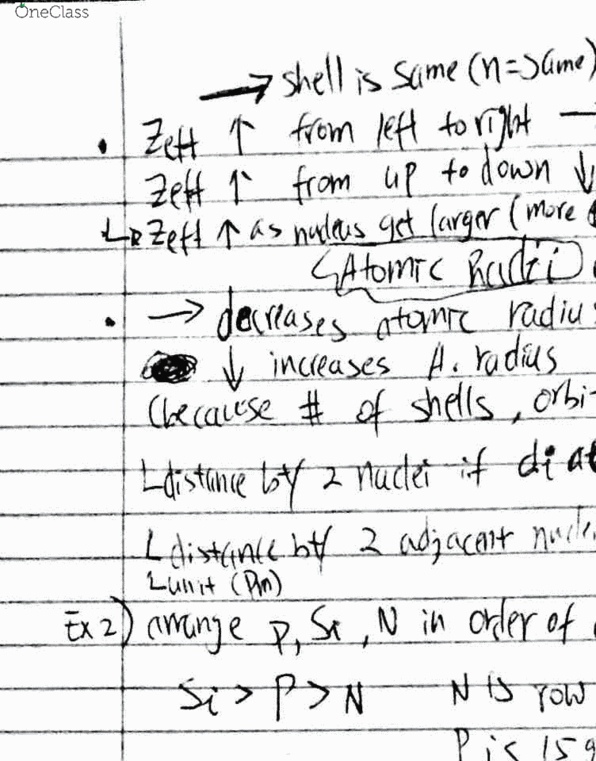 OneClass
→ shell is same (n=same)
• Zeff ↑ from left to right →
Zeff ↑ from up to down ↓
↳ Zeff ↑ as nucleus get larger (more
↳ Atomic Radii
• → decreases atomic radius
↓ increases A. radius
(because # of shells, orbi
L distance b/t 2 nuclei if diat
L distance b/t 2 adjacent nucle
L unit (Pm)
Ex 2) arrange P, Si, N in order of
Si > P > N N is row
P is 15 g